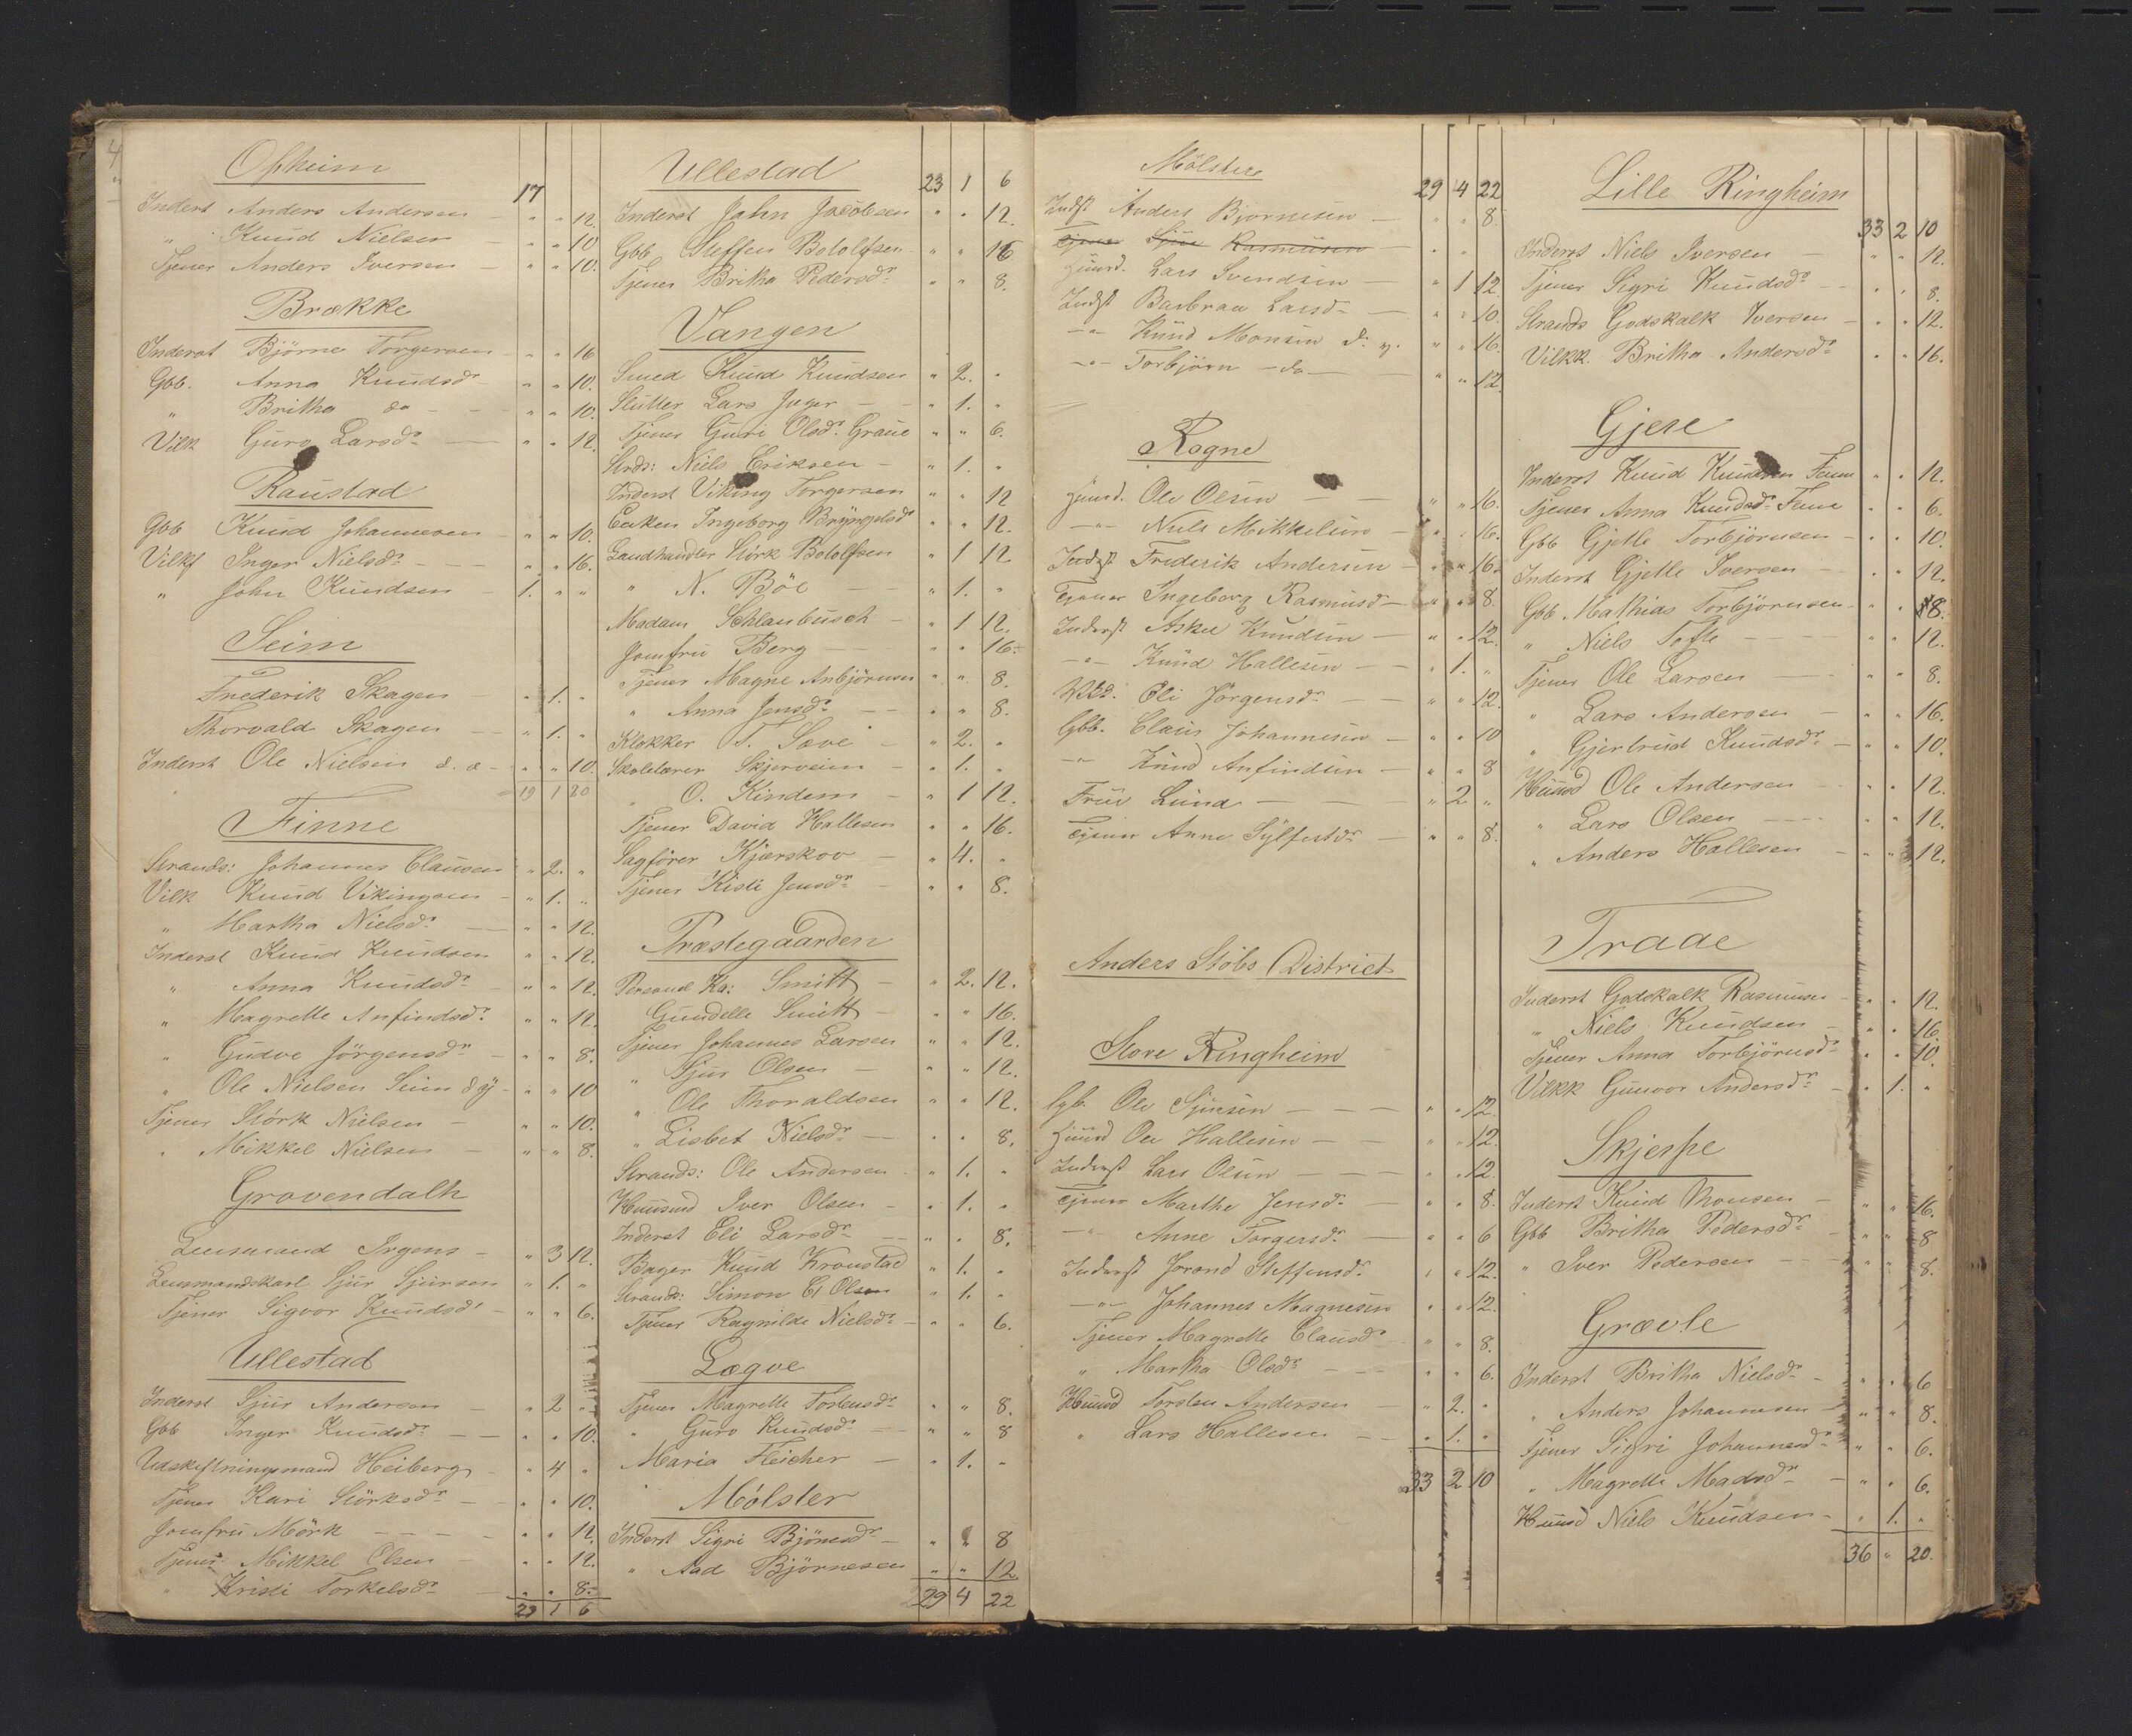 4
Opheim
17
Inderst Anders Andersen — " " 12.
" Knud Nielsen — " " 10
Tjener Anders Iversen — " " 10.
Brække
Inderst Björne Torgersen — " " 16
Gbb. Anna Knudsdr " " 10.
" Britha do - - " " 10.
Vilk Guro Larsdr — " " 12.
Raustad
Gbb Knud Johannesen " " 10.
Vilkf Inger Nielsdr - - - " " 16.
" John Knudsen — 1. " "
Seim
Frederik Skagen — " 1. "
Thorvald Skagen — " 1. "
Inderst Ole Nielsen d. æ - " " 10.
19 1 20
Finne
Strands: Johannes Clausen " 2. "
Vilk Knud Vikingsen — " 1. "
" Martha Nielsdr — " " 12.
Inderst Knud Knudsen " " 12.
" Anna Knudsdr " " 12.
" Magrethe Anfindsdr " " 12.
" Gudve Jörgensdr - " " 8.
" Ole Nielsen Seim d y - " " 10
Tjener Störk Nielsen — " " 10.
" Mikkel Nielsen — " " 8.
Grovendalh
Lensmand Irgens — " 3 12.
Lensmandskarl Sjur Sjursen " 1. "
Tjener Sigvor Knudsdr — " " 6.
Ullestad
Inderst Sjur Andersen — " 2 "
Gbb Inger Knudsdr — " " 10.
Udskiftningsmand Heiberg - " 4 "
Tjener Kari Störksdr — " " 10.
Jomfru Mörk - - - - " " 12.
Tjener Mikkel Olsen — " " 12.
" Kristi Torkelsdr " " 8.
23 1 6
Ullestad
23 1 6
Inderst John Jacobsen " " 12.
Gbb Steffen Bololfsen - " " 16
Tjener Britha Pedersdr " " 8.
Vangen
Smed Knud Knudsen " 2. "
Slutter Lars Jæger - - " 1. "
Tjener Guri Olsdr Graue " " 6.
Strds: Niels Eriksen — " 1. "
Inderst Viking Torgersen " " 12
Enken Ingeborg Bryngelsdr " " 12.
Landhandler Störk Bololfsen " 1 12
" N. Böe — " 1. "
Madam Schlanbusch - " 1 12.
Jomfru Berg — " " 16.
Tjener Magne Anbjörnsen " " 8.
" Anna Jensdr — " " 8.
Klokker T. Sæve - " 2. "
Skolelærer Skjerveim - " 1. "
" O. Kindem - " 1 12.
Tjener David Hallesen " " 16.
Sagförer Kjærskov — " 4. "
Tjener Kisti Jensdr - " " 8.
Præstegaarden
Personel Ka: Smitt — " 2. 12.
Gundelle Smitt — " " 16.
Tjener Johannes Larsen " " 12.
" Sjur Olsen — " " 12.
" Ole Thoraldsen " " 12.
" Lisbet Nielsdr — " " 8.
Strands: Ole Andersen - " 1. "
Huusmd Iver Olsen - " 1. "
Inderst Eli Larsdr — " " 8.
Bager Knud Kronstad " 1. "
Strands: Simon C. Olsen " 1. "
Tjener Ragnilde Nielsdr — " " 6.
Lægve
Tjener Magrethe Torbensdr " " 8.
" Guro Knudsdr " " 8
Maria Fleicher — " 1. "
Mölster
Inderst Sigri Björnsdr — " " 8
" Aad Björnesen " " 12
29 4 22
Mölster
29 4 22
Indst Anders Bjornesen — " " 8.
Tjener Sjur Rasmusen " "
Huusd. Lars Svendsen — " 1 12
Indst Barbraa Larsd- — " " 10.
-"- Knud Monsen d. y. " " 16.
-"- Torbjörn - do — " " 12.
Rogne
Huusd. Ole Olsen — — " " 16.
-"- Niels Mikkelsen — " " 16.
Inderst Frederik Andersen — " " 16.
Tjener Ingeborg Rasmusd — " " 8.
Inderst Askel Knudsen — " " 12.
-"- Knud Hallesen — " 1. "
Vkk. Eli Jörgensdr — " " 12.
Gbb. Claus Johannesen — " " 10
-"- Knud Anfindsen — " " 8
Frue Lund — — " 2 "
Tjener Anne Sylfestdr — " " 8.
Anders Stöbs District
Store Ringheim
Gb. Ole Sjursen — — " " 12.
Huusd Ole Hallesen — " " 12.
Inderst Lars Olsen — — " " 12
Tjener Marthe Jensdr — " " 8.
-"- Anne Torgersdr — " " 6
Inderst Jorand Steffensdr " " 12.
-"- Johannes Magnesen " " 12.
Tjener Magrethe Clausdr " " 8.
" Martha Olsdr - - - " " 6.
Huusd Torsten Andersen — " 2. "
" Lars Hallesen - - " 1. "
33 2 10
Lille Ringheim
33 2 10
Inderst Niels Iversen — " " 12.
Tjener Sigri Knudsdr - - " " 8.
Strands Godskalk Iversen — " " 12.
Vilkk. Britha Andersdr " " 16.
Gjere
Inderst Knud Knudsen Finne " " 12.
Tjener Anna Knudsdr Finne " " 6.
Gbb Gjelle Torbjörnsen — " " 10.
Inderst Gjelle Iversen — " " 12.
Gbb. Mathias Torbjörnsen - " " 8.
" Niels Tofte - - - " " 12.
Tjener Ole Larsen — " " 8.
" Lars Andersen — " " 16.
" Gjertrud Knudsdr — " " 10.
Huusd Ole Andersen — " " 12.
" Lars Olsen - - - " " 12.
" Anders Hallesen - " " 12.
Traae
Inderst Godskalk Rasmusen - " " 12.
" Niels Knudsen — " " 16
Tjener Anna Torbjörnsdr " " 10.
Vilkk Gunvor Andersdr — " 1. "
Skjerpe
Inderst Knud Monsen — " " 16.
Gbb Britha Pedersdr " " 8
" Iver Pedersen — " " 8.
Grævle
Inderst Britha Nielsdr - " " 6
" Anders Johannesen — " " 8.
Tjener Sigri Johannesdr " " 6.
" Magrethe Madsdr — " " 6.
Huusd Niels Knudsen - " 1. "
36 " 20.